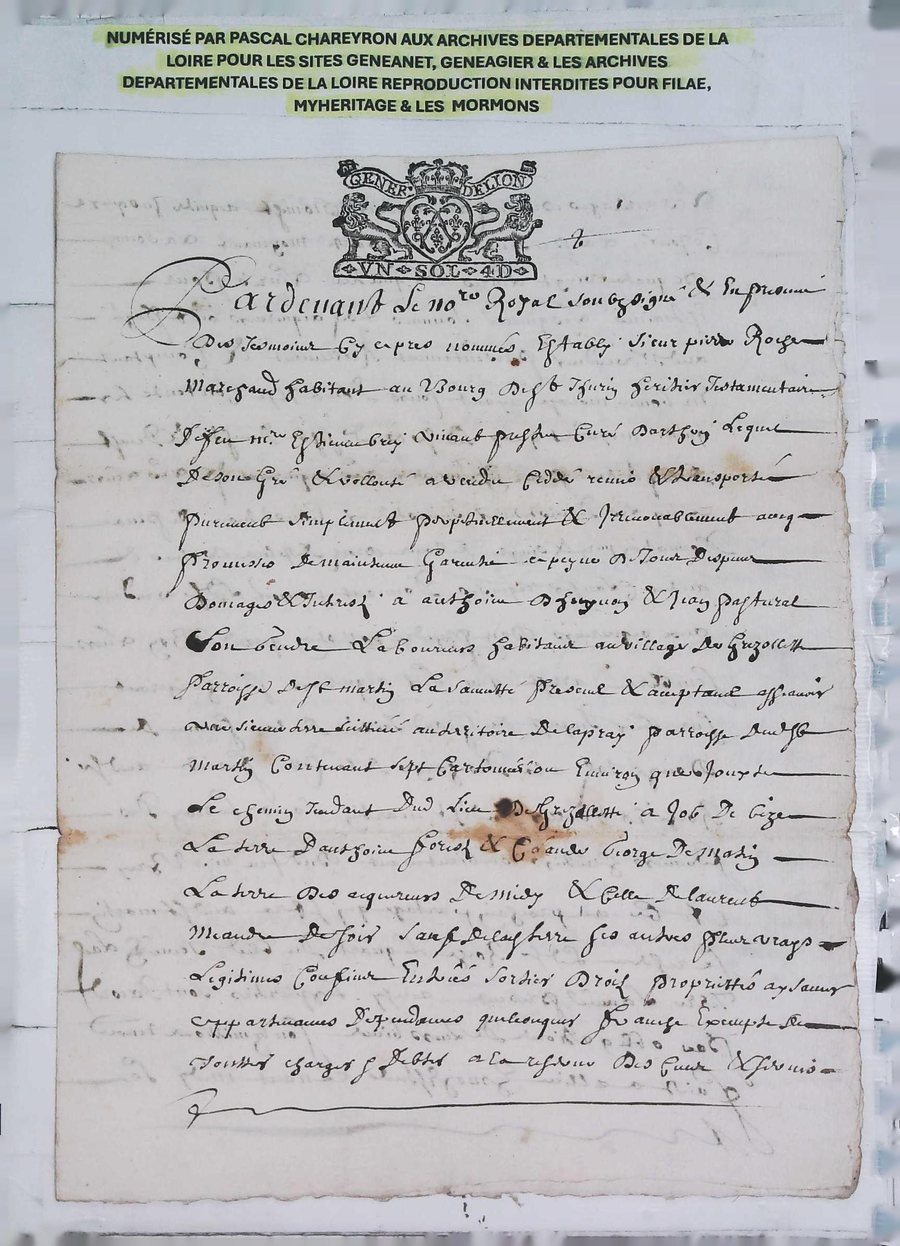 NUMÉRISÉ PAR PASCAL CHAREYRON AUX ARCHIVES DEPARTEMENTALES DE LA
LOIRE POUR LES SITES GENEANET, GENEAGIER & LES ARCHIVES
DEPARTEMENTALES DE LA LOIRE REPRODUCTION INTERDITES POUR FILAE,
MYHERITAGE & LES MORMONS
GENER. DELION
VN SOL 4D
Pardevant Le no.re Royal soubzsigné & En presance
Des Tesmoins Cy apres nommés Estably sieur pierre Roche
Marchand habitant au Bourg De st Thurin heritier Testamentaire
De feu m.re Estienne vivant prestre Curé Darthun Lequel
De son Gré & vollonté a vendu Ceddé remis & transporté
purement simplement perpetuellement & Irrevocablement avec
promesse De maintenue Garentie a peyne De Tous Despans
Domages & Interest à anthoine & Jean pastural
Son Gendre Laboureurs habitans au village De Grezollette
parroisse De st martin La sauvetté presens & acceptans assavoir
une terre scittuée au territoire De lapray parroisse Dud st
Martin Contenant sept Cartonnées ou Environ que Jouxte
Le chemin Tendant Dud Lieu De Grezollette à De bize
La terre Danthoine & Claude George De Matin
La terre Des acquereurs De midy & Celle De laurent
De soir sauf De lad terre ses autres plus vrays
Legitimes Confins Entrées sorties Droits proprietés aysances
appartenances Dependances quelconques franche Exempte De
Touttes charges & Debtes a la reserve Des Cens & servis